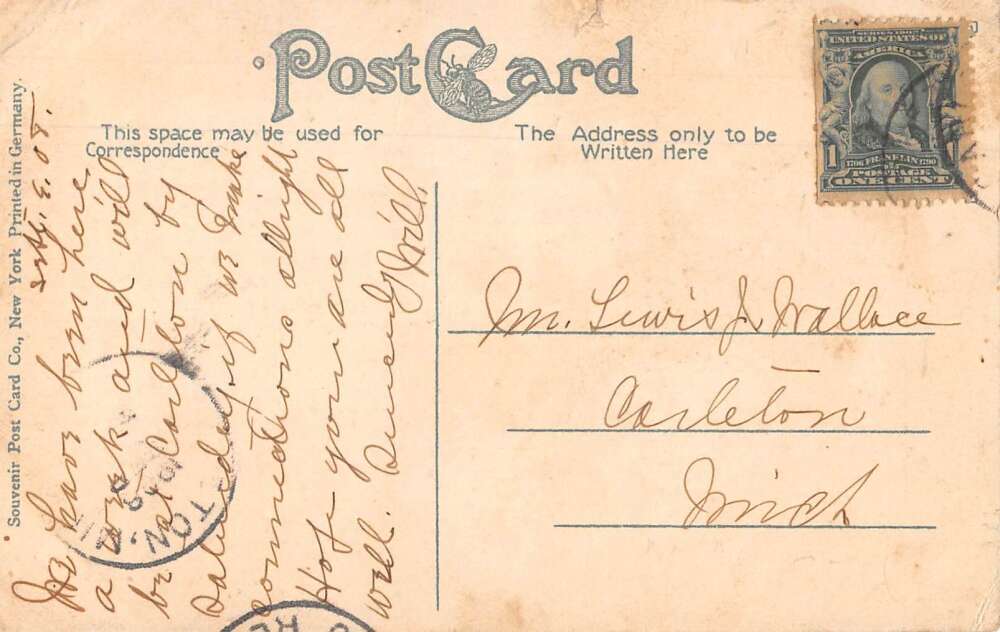 Post Card
This space may be used for
Correspondence
The Address only to be
Written Here
SERIES 1902
UNITED STATES OF
AMERICA
1
1706 FRANKLIN 1790
POSTAGE
ONE CENT
Souvenir Post Card Co., New York Printed in Germany.
3. 08.
We have been here
a week and will
be at Carlton by
Saturday if we make
connecthons allright
Hof your are all
well. Sincerely Will.
Mr. Lewis J. Wallace
Carleton
Mich
TON, MI